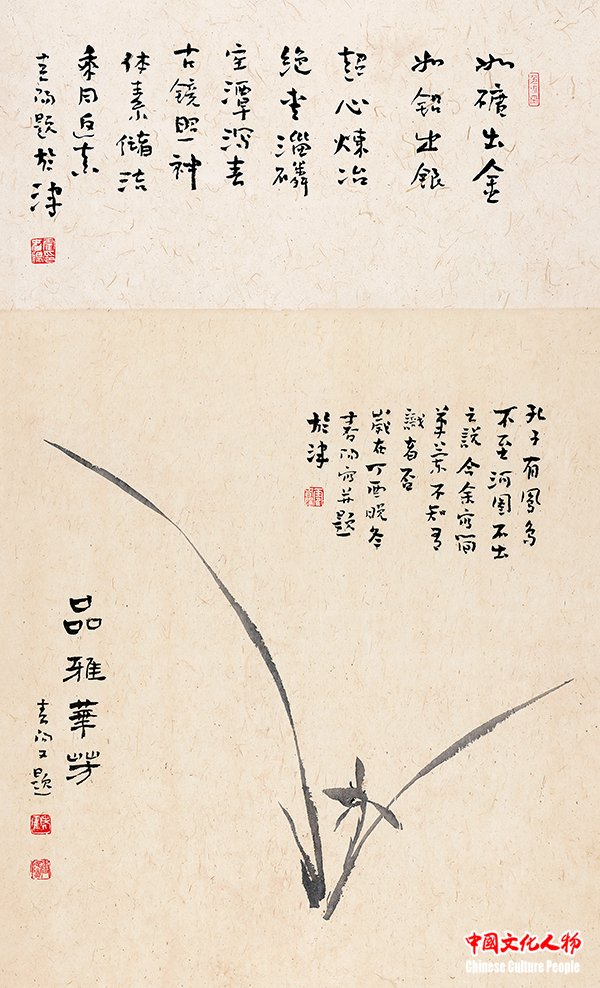 如礦出金
如鉛出銀
超心煉冶
絶愛淄磷
空潭瀉春
古鏡照神
体素儲洁
乘月返真
春阳題於津
孔子有鳳鳥
不至河圖不出
之說今余寫簡
筆蘭不知有
識者否
歲在丁酉晚冬
春阳寫并題
於津
品雅華芳
春阳又題
中國文化人物
Chinese Culture People